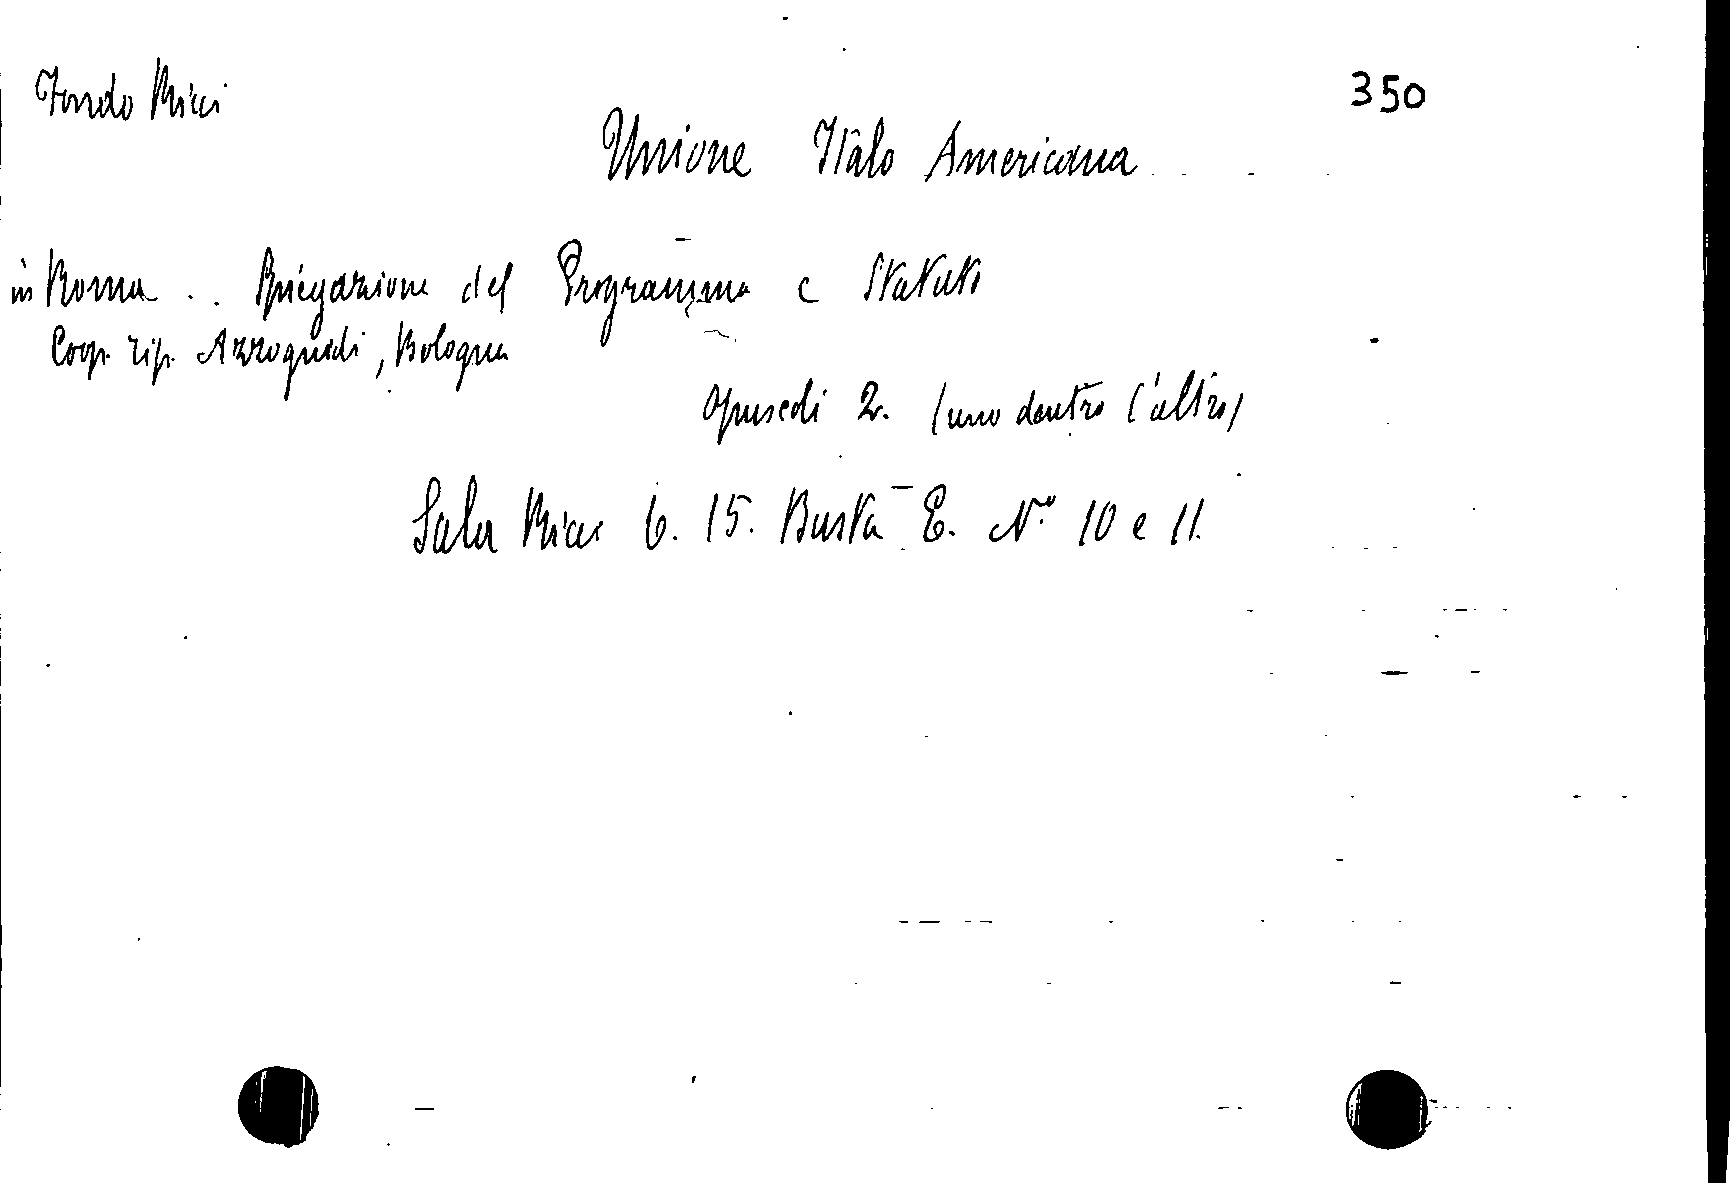 Fondo Ricci
350
Unione Italo Americana
in Roma .. Spiegazione del Programma e Statuto
Coop. tip. Azzoguidi, Bologna
Opuscoli 2. (uno dentro l'altro)
Sala Ricci 6. 15. Busta E. N.º 10 e 11.